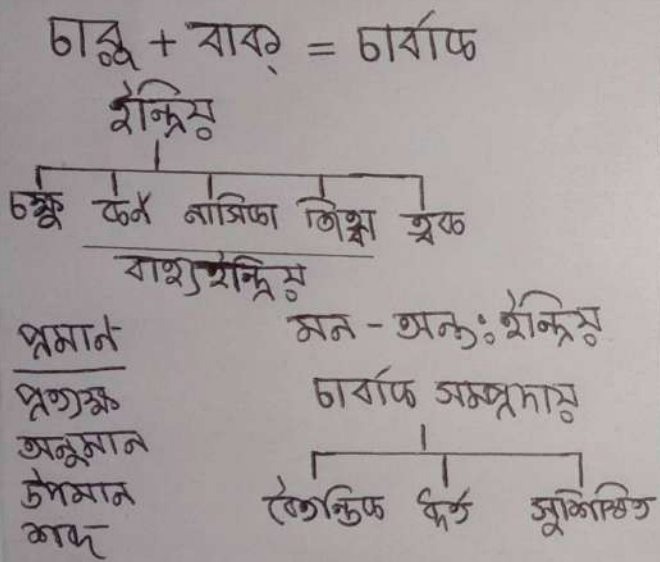 চারু + বাক্ = চার্বাক
ইন্দ্রিয়
চক্ষু কর্ন নাসিকা জিহ্বা ত্বক
বাহ্যইন্দ্রিয়
মন - অন্তঃইন্দ্রিয়
প্রমান
প্রত্যক্ষ
অনুমান
উপমান
শব্দ
চার্বাক সম্প্রদায়
বৈতন্ডিক ধূর্ত সুশিক্ষিত